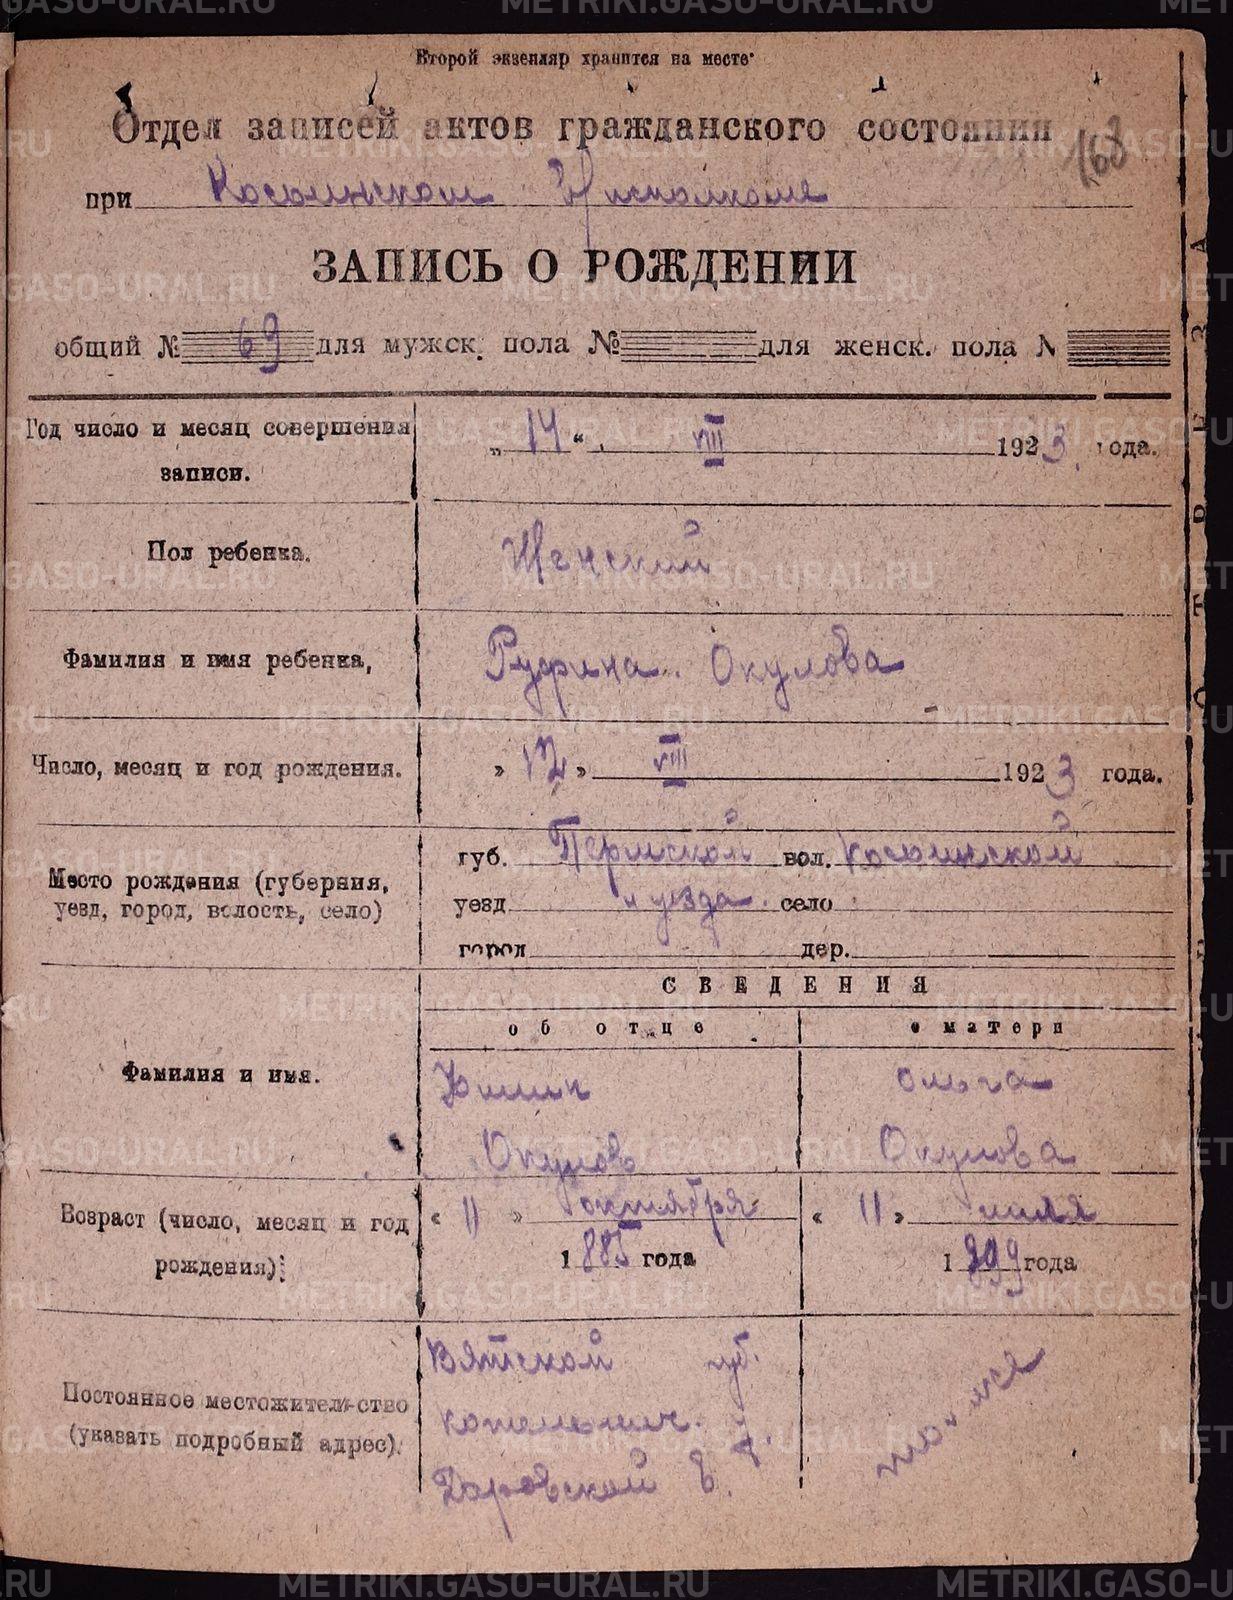 Второй экземпляр хранится на месте
Отдел записей актов гражданского состояния
163
при Косьинском Исполкоме
ЗАПИСЬ О РОЖДЕНИИ
общий № 69 для мужск. пола № для женск. пола №
Год число и месяц совершения записи.
„ 14 “ VIII 1923 года.
Пол ребенка.
Женский
Фамилия и имя ребенка,
Руфина. Окулова
Число, месяц и год рождения.
» 12 » VIII 1923 года.
Место рождения (губерния, уезд, город, волость, село)
губ. Пермской вол. Косьинской
уезд и уезда село
город дер.
СВЕДЕНИЯ
об отце
о матери
Фамилия и имя.
Окулов
Ольга
Окулова
Возраст (число, месяц и год рождения);
« 11 » октября
1885 года
« 11 » июля
1899 года
Постоянное местожительство (указать подробный адрес).
Вятской губ.
котельнич. у.
Даровской в.
тоже
ОТРЕЗ
METRIKI.GASO-URAL.RU